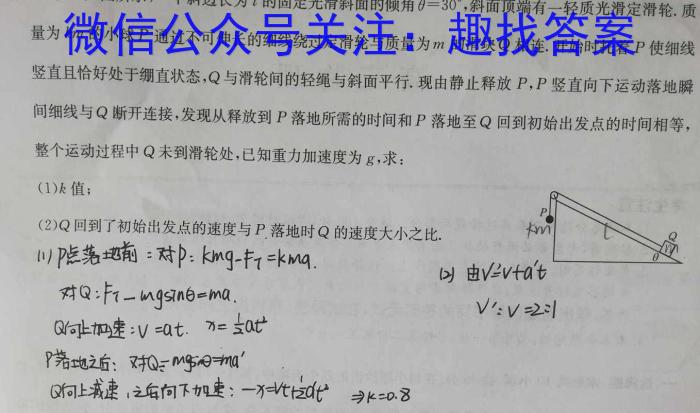 一个斜边长为l的固定光滑斜面的倾角θ=30°,斜面顶端有一轻质光滑定滑轮.质
微信公众号关注：趣找答案
量为km的小球P通过不可伸长的细线绕过定滑轮与质量为m的滑块Q相连.开始时托着P使细线
竖直且恰好处于绷直状态,Q与滑轮间的轻绳与斜面平行.现由静止释放P,P竖直向下运动落地瞬
间细线与Q断开连接,发现从释放到P落地所需的时间和P落地至Q回到初始出发点的时间相等,
整个运动过程中Q未到滑轮处,已知重力加速度为g,求:
(1)k值;
(2)Q回到了初始出发点的速度与P落地时Q的速度大小之比.
P
km
l
Q
m
θ
(1) P点落地前：对P：kmg-F_T=kma.
对Q：F_T-mgsinθ=ma.
Q向上加速：v=at. x=½at²
P落地之后：对Q：-mgsinθ=ma'
Q向上减速，之后向下加速：-x=vt+½a't² ⇒k=0.8
(2) 由v'=v+a't
v':v=2:1